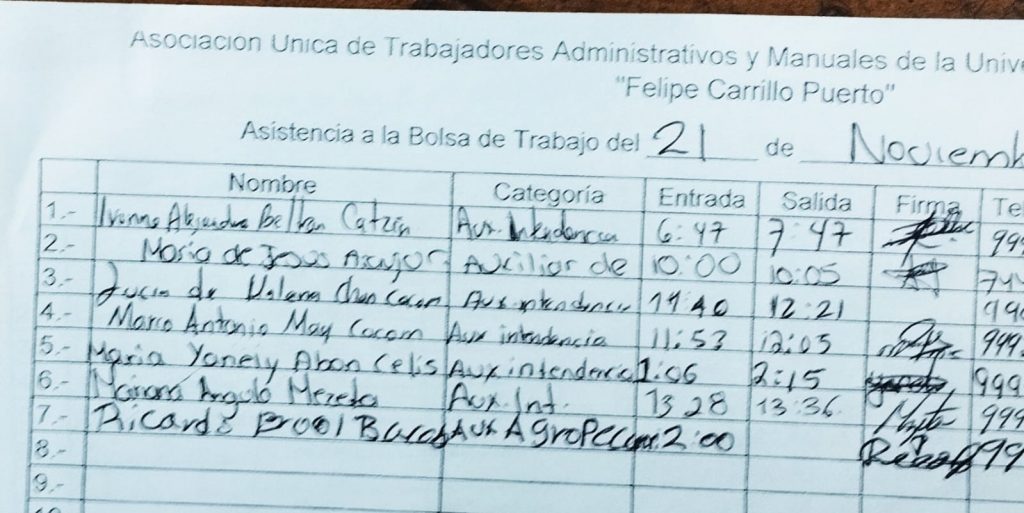 Asociación Unica de Trabajadores Administrativos y Manuales de la Unive
"Felipe Carrillo Puerto"
Asistencia a la Bolsa de Trabajo del 21 de Noviemb
Nombre Categoría Entrada Salida Firma Te
1.- Ivonne Alejandra Catzín Aux. Intendencia 6:47 7:47 999
2.- María de Jesus Auxiliar de 10:00 10:05 74
3.- Lucia de Aux intendencia 11 40 12:21 999
4.- Marco Antonio May Cocom Aux intendencia 11:53 12:05 999
5.- Maria Yanely Aban Celis Aux intendencia 1:06 2:15 999
6.- Angulo Aux. Int. 13 28 13:36 999
7.- Ricardo Aux 2:00 99
8.-
9.-
10.-